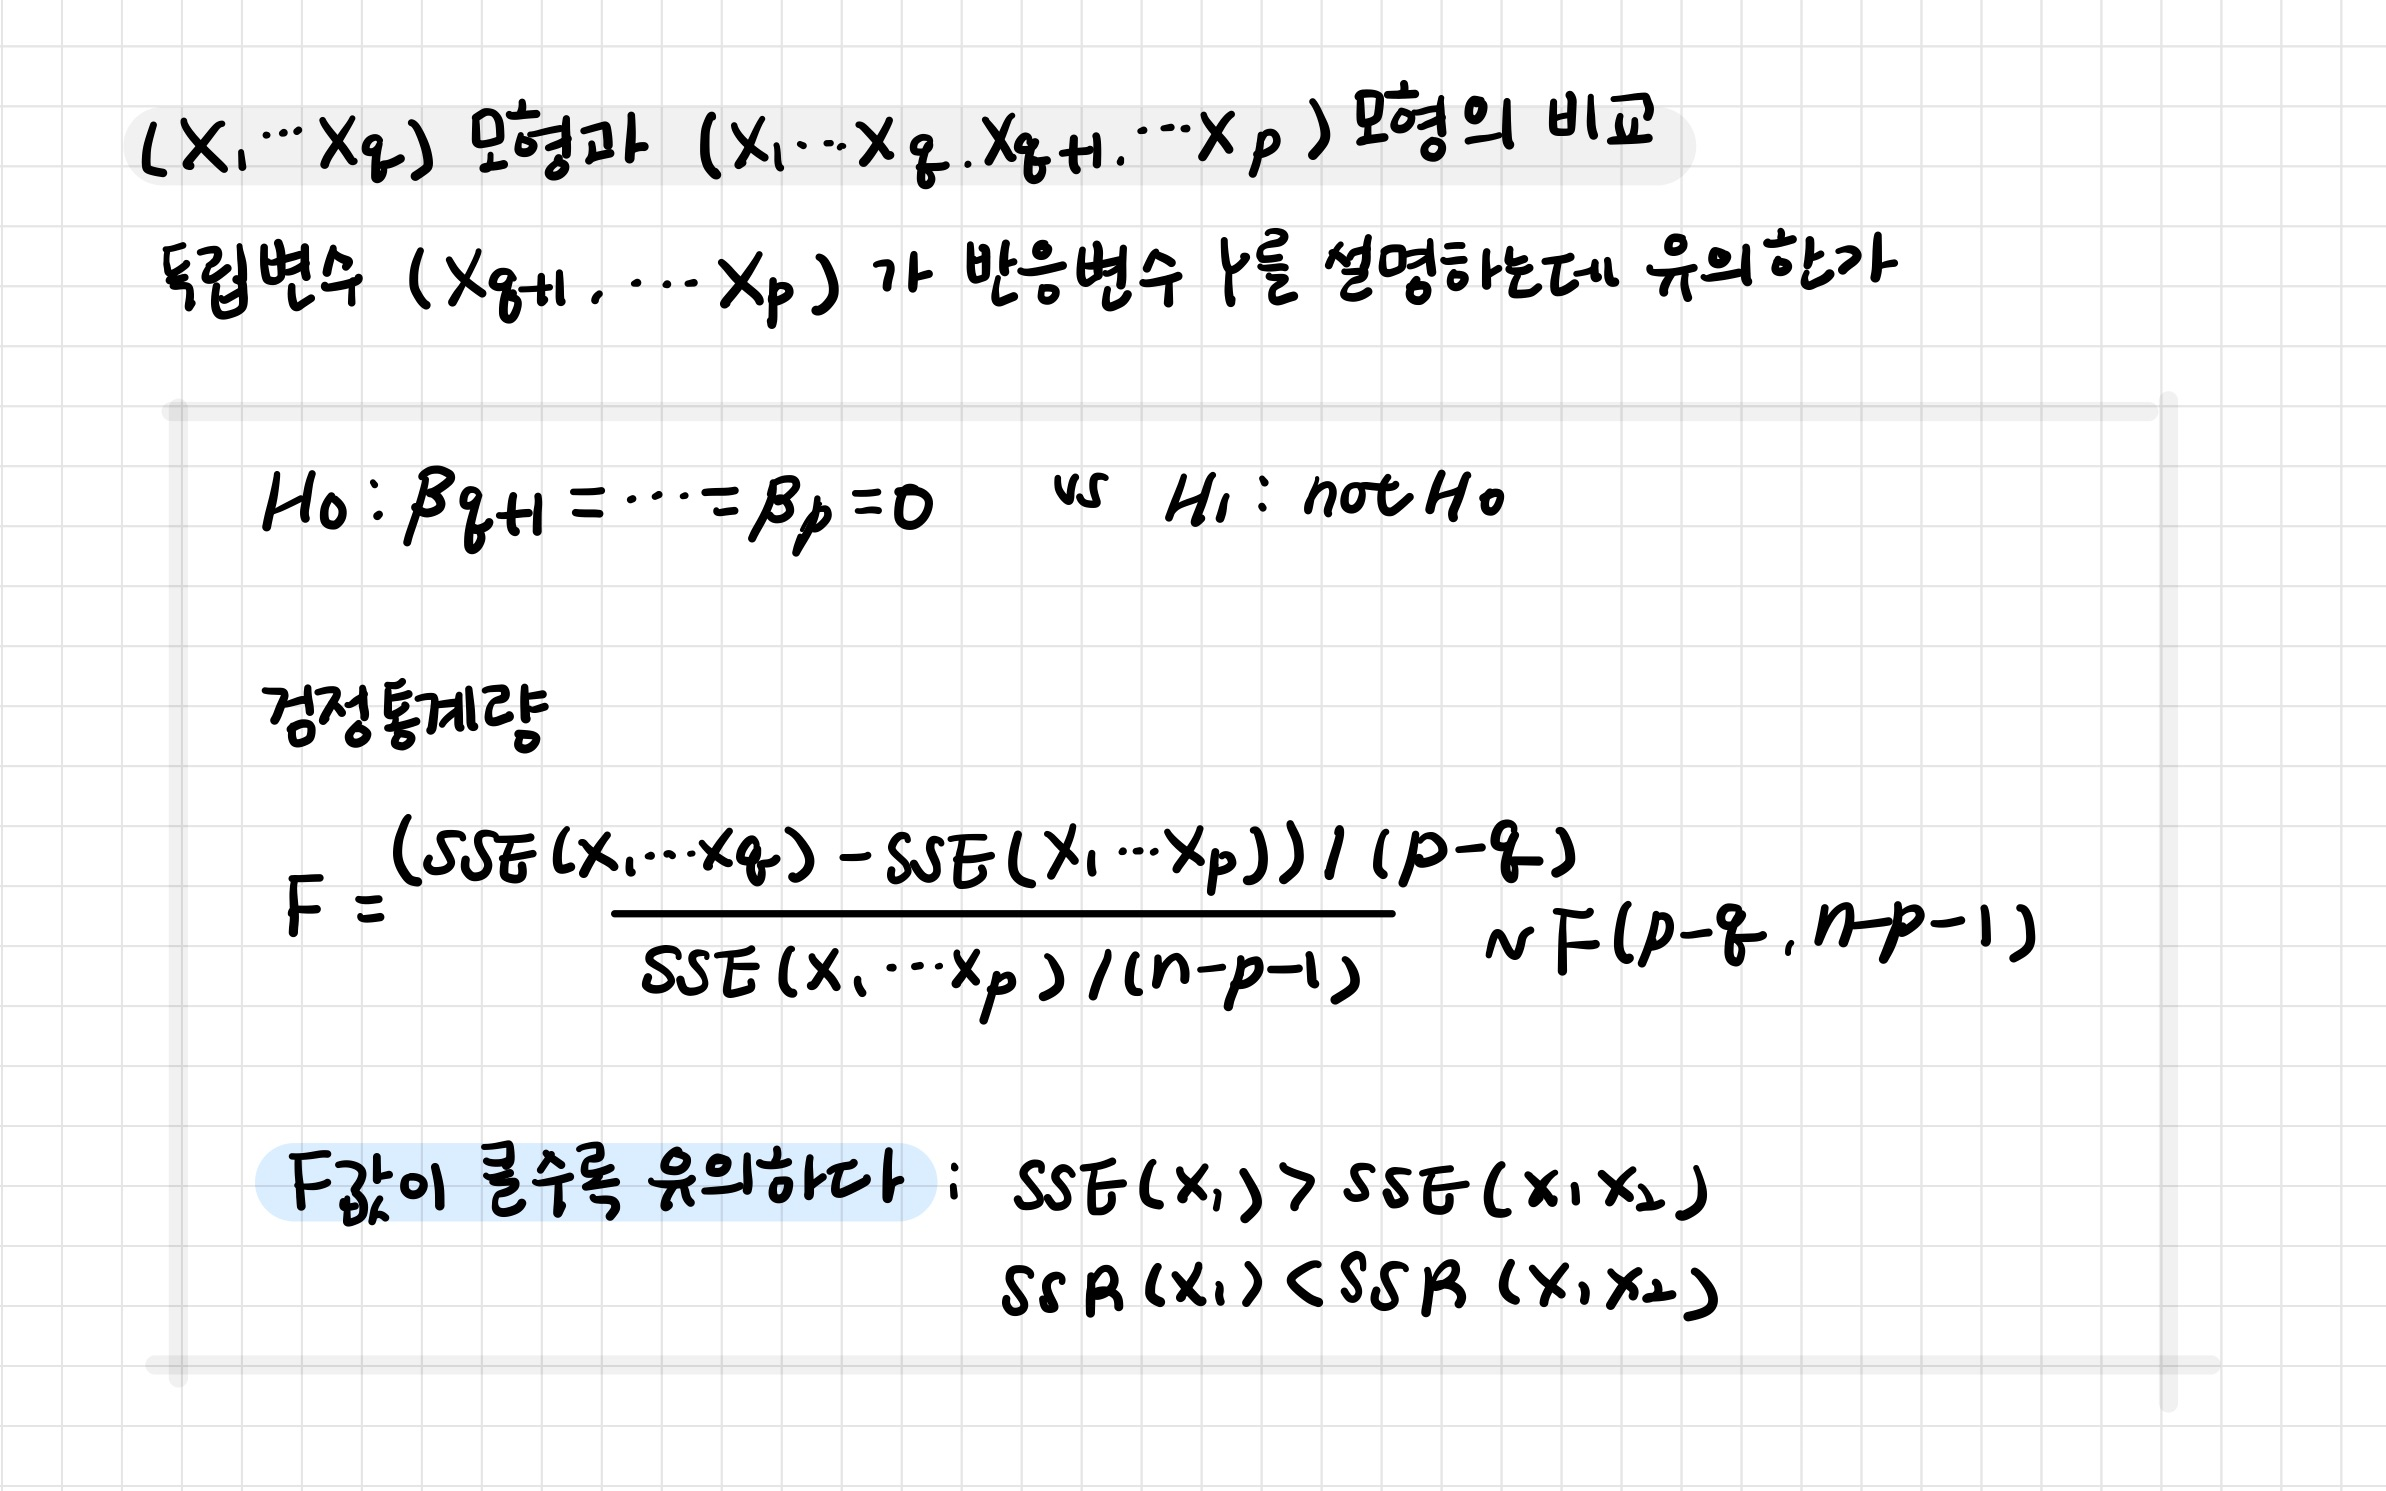 (X₁ ⋯ Xq) 모형과 (X₁ ⋯ Xq, Xq+1, ⋯ Xp) 모형의 비교
독립변수 (Xq+1, ⋯ Xp) 가 반응변수 Y를 설명하는데 유의한가
H₀ : βq+1 = ⋯ = βp = 0 vs H₁ : not H₀
검정통계량
F = (SSE(X₁, ⋯ Xq) - SSE(X₁ ⋯ Xp)) / (p-q)
SSE(X₁, ⋯ Xp) / (n-p-1) ~ F(p-q, n-p-1)
F값이 클수록 유의하다 : SSE(X₁) > SSE(X₁X₂)
SSR(X₁) < SSR (X₁X₂)